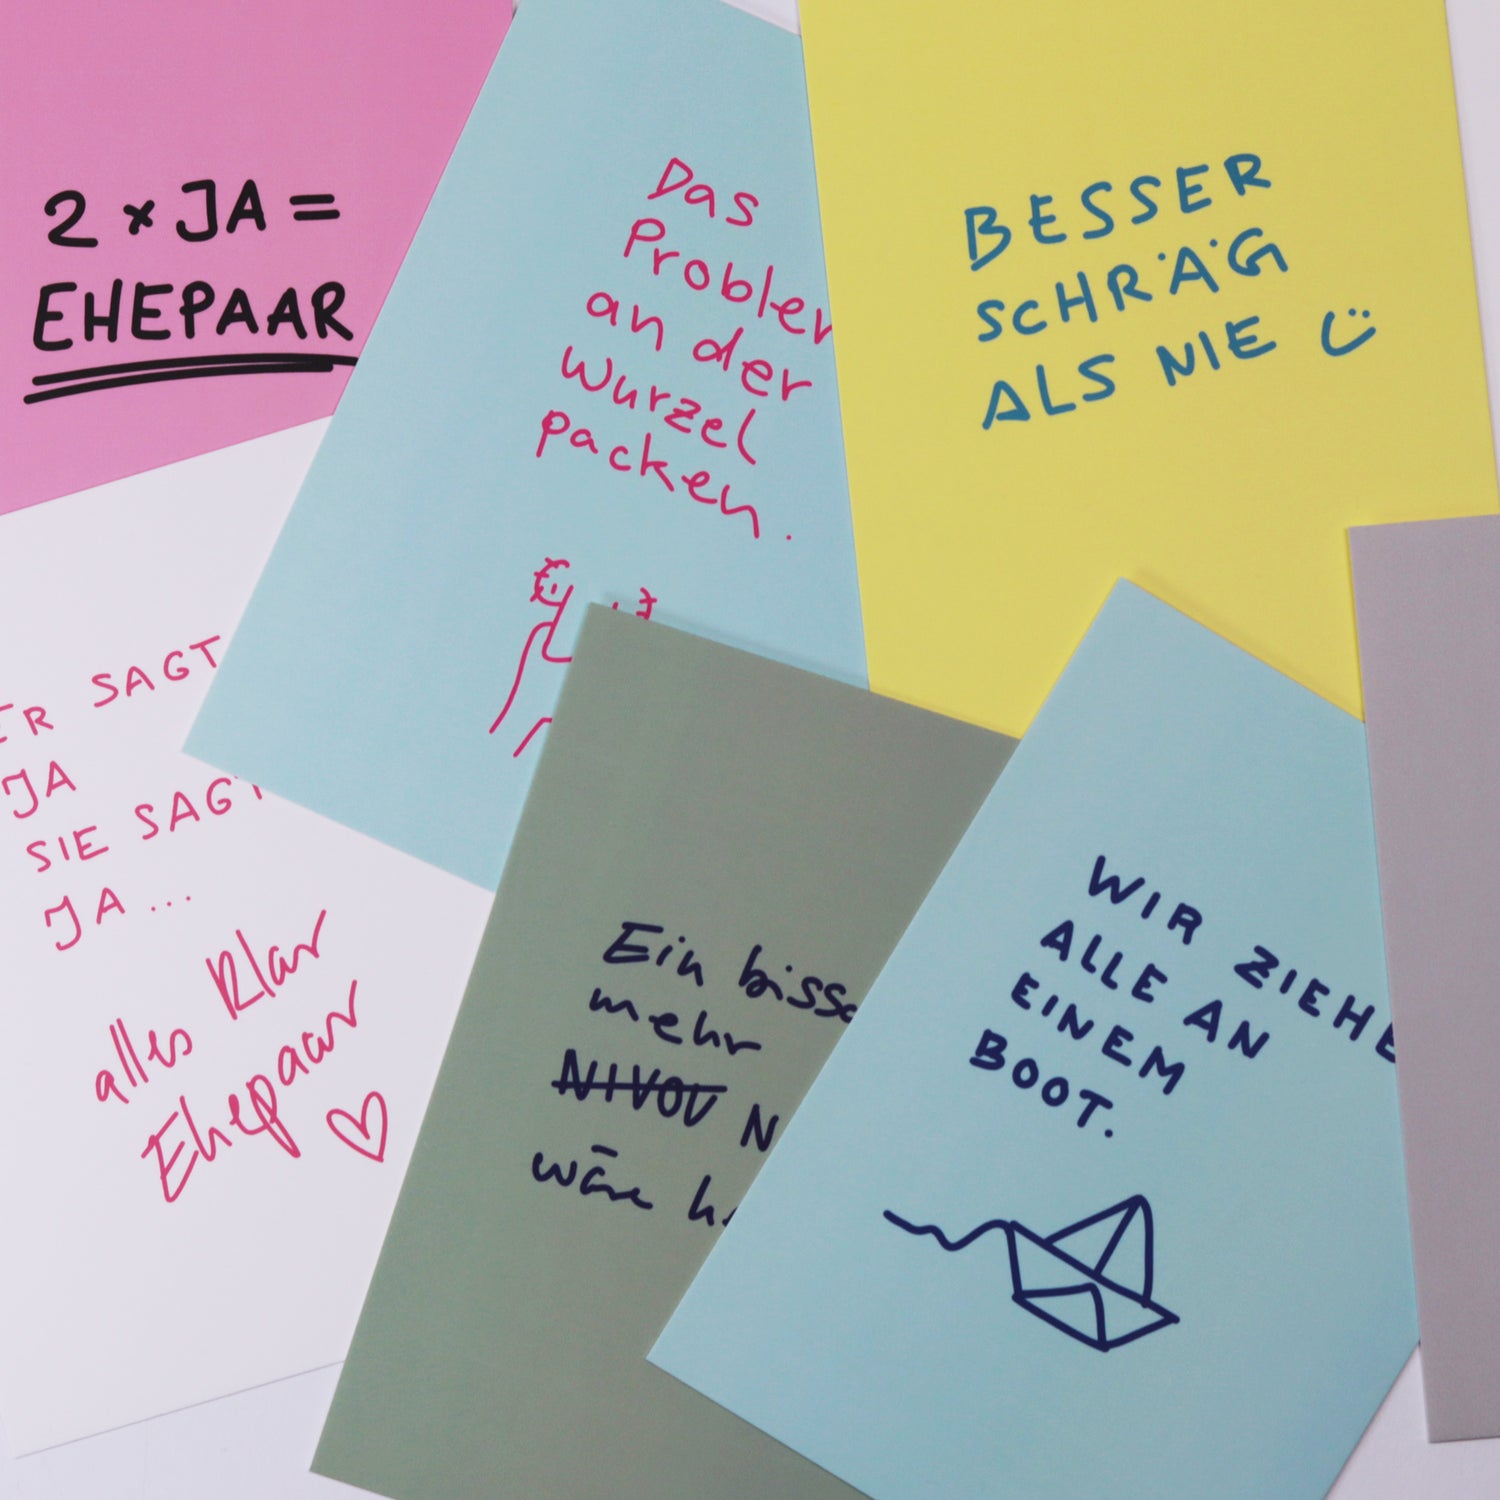 2 x JA =
EHEPAAR
Das
Problem
an der
Wurzel
packen.
BESSER
SCHRÄG
ALS NIE
ER SAGT
JA
SIE SAGT
JA...
alles Klar
Ehepaar
Ein bissc
mehr
NIVOU N
wäre
WIR ZIEHE
ALLE AN
EINEM
BOOT.